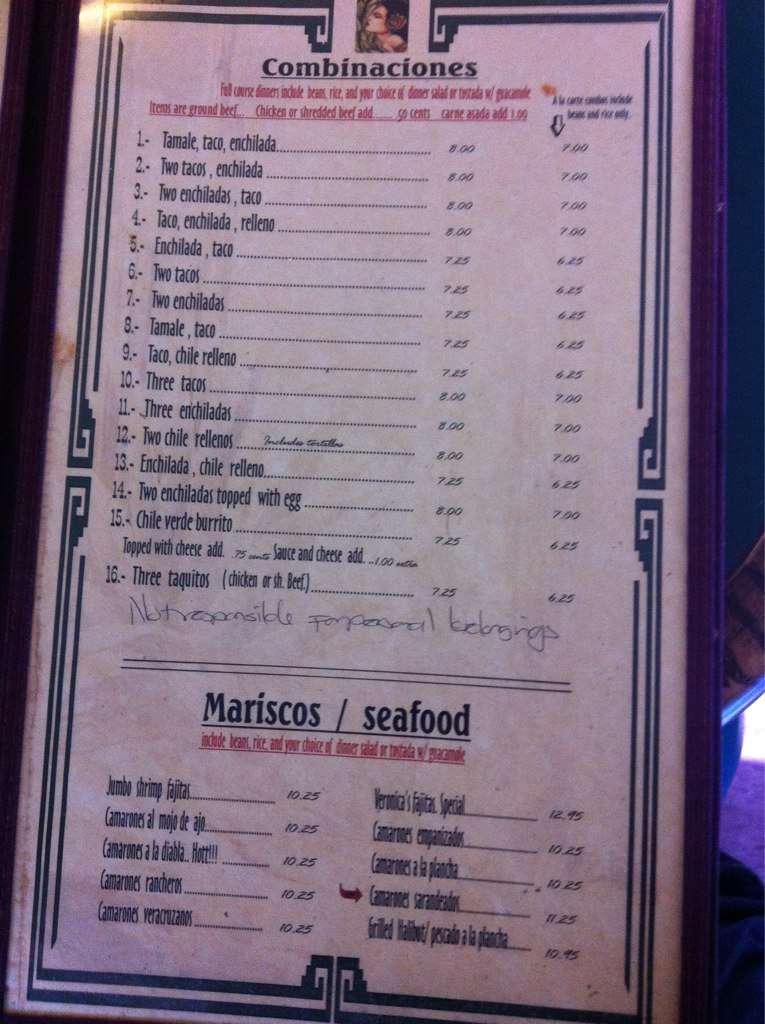 Combinaciones
Full course dinners include beans, rice, and your choice of dinner salad or tostada w/ guacamole
Items are ground beef... Chicken or shredded beef add....... 50 cents carne asada add 1.00
A la carte combos include
beans and rice only.
1.- Tamale, taco, enchilada 8.00 7.00
2.- Two tacos , enchilada 8.00 7.00
3.- Two enchiladas , taco 8.00 7.00
4.- Taco, enchilada , relleno 8.00 7.00
5.- Enchilada , taco 7.25 6.25
6.- Two tacos 7.25 6.25
7.- Two enchiladas 7.25 6.25
8.- Tamale , taco 7.25 6.25
9.- Taco, chile relleno 7.25 6.25
10.- Three tacos 8.00 7.00
11.- Three enchiladas 8.00 7.00
12.- Two chile rellenos Includes tortillas 8.00 7.00
13.- Enchilada , chile relleno 7.25 6.25
14.- Two enchiladas topped with egg 8.00 7.00
15.- Chile verde burrito 7.25 6.25
Topped with cheese add. .75 cents Sauce and cheese add. ..1.00 extra
16.- Three taquitos ( chicken or sh. Beef.) 7.25 6.25
Not responsible for personal belongings
Mariscos / seafood
include beans, rice, and your choice of dinner salad or tostada w/ guacamole
Jumbo shrimp fajitas 10.25
Camarones al mojo de ajo 10.25
Camarones a la diabla.. Hott!!! 10.25
Camarones rancheros 10.25
Camarones veracruzanos 10.25
Veronica's fajitas. Special 12.95
Camarones empanizados 10.25
Camarones a la plancha 10.25
Camarones sarandeados 11.25
Grilled Halibut/ pescado a la plancha 10.95